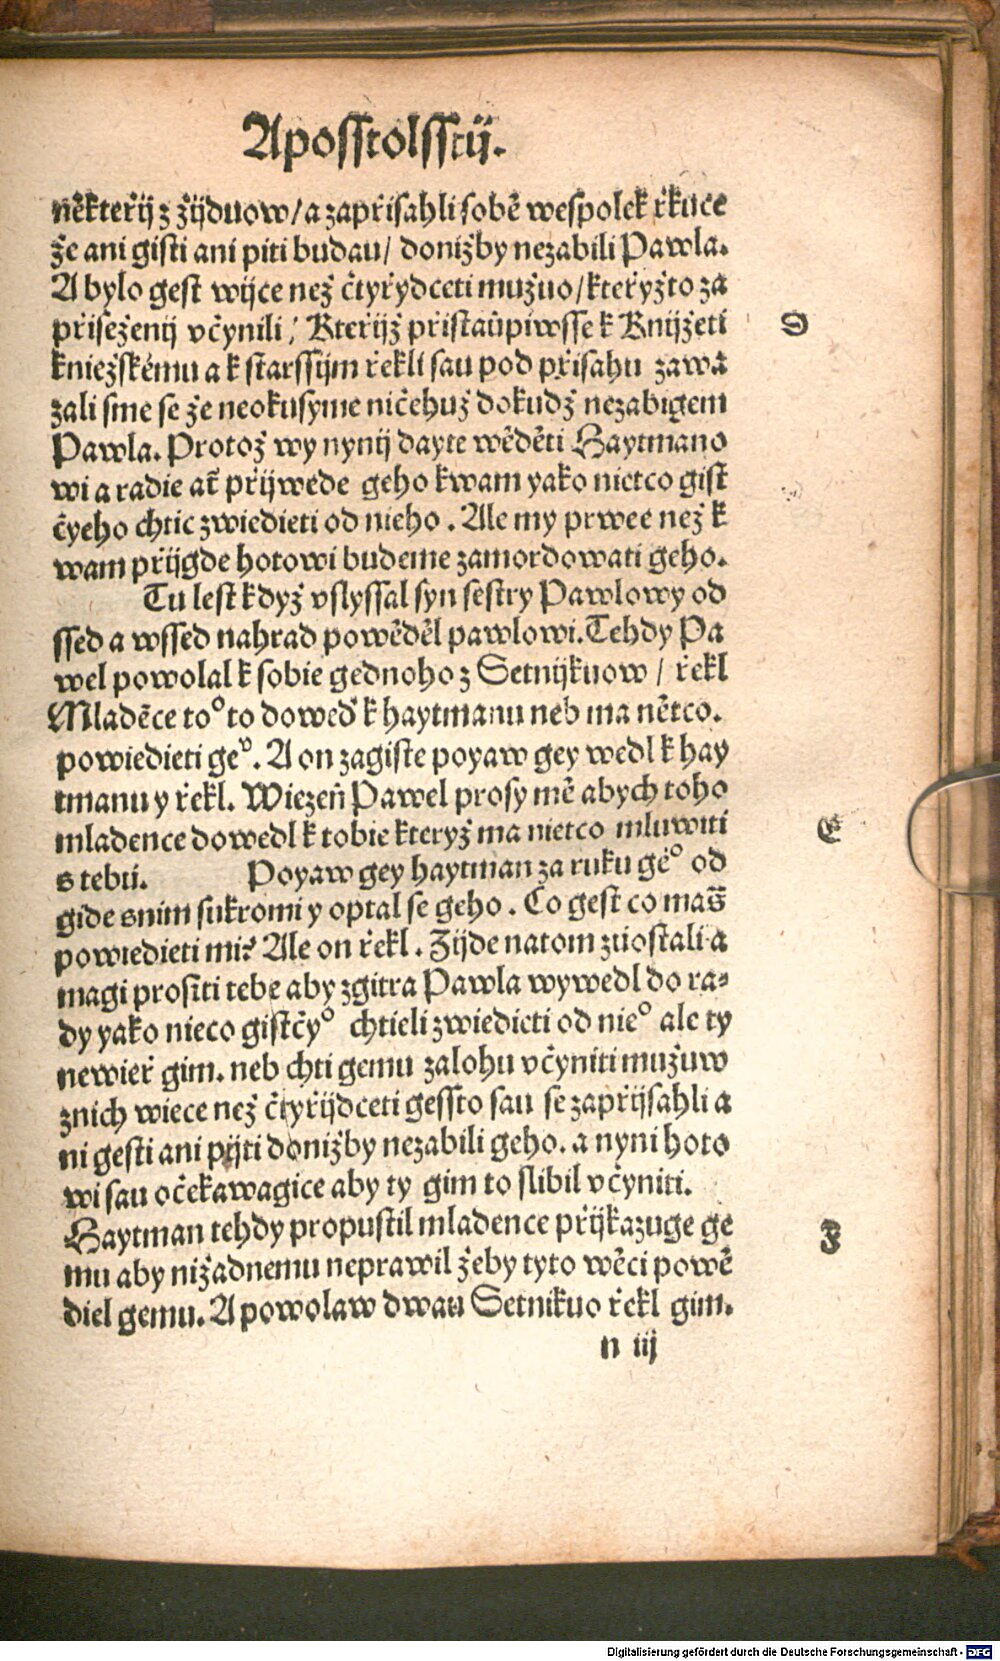 Aposstolsstij.
někteřij z žijduow/a zapřisahli sobě wespolek řkuce
že ani gisti ani piti budau/ donižby nezabili Pawla.
A bylo gest wijce než čtyřydceti mužuo/kteřyžto za
přiseženij včynili/ Kteřijž přistaupiwsse k Knijžeti
kniežskému a k starssijm řekli sau pod přisahu zawa
zali sme se že neokusyme ničehuž dokudž nezabigem
Pawla. Protož wy nynij dayte wěděti Haytmano
wi a radie ať přijwede geho kwam yako nietco gist
čyeho chtic zwiedieti od nieho. Ale my prwee než k
wam přijgde hotowi budeme zamordowati geho.
Tu lest když vslyssal syn sestry Pawlowy od
ssed a wssed nahrad powěděl pawlowi. Tehdy Pa
wel powolal k sobie gednoho z Setnijkuow/ řekl
Mladěce to° to doweď k haytmanu neb ma nětco.
powiedieti geᵛ. A on zagiste poyaw gey wedl k hay
tmanu y řekl. Wiezeň Pawel prosy mě abych toho
mladence dowedl k tobie kteryž ma nietco mluwiti
s tebu. Poyaw gey haytman za ruku ge° od
gide snim sukromi y optal se geho. Co gest co mas̈
powiedieti mi? Ale on řekl. Zijde natom zuostali a
magi prositi tebe aby zgitra Pawla wywedl do ra=
dy yako nieco gistčy° chtieli zwiedieti od nie° ale ty
newieř gim. neb chti gemu zalohu včyniti mužuw
znich wiece než čtyřijdceti gessto sau se zapřijsahli a
ni gesti ani pijti donižby nezabili geho. a nyni hoto
wi sau očekawagice aby ty gim to slibil včyniti.
Haytman tehdy propustil mladence přijkazuge ge
mu aby nižadnemu neprawil žeby tyto wěci powě
diel gemu. A powolaw dwau Setnikuo řekl gim.
n iij
D
E
F
Digitalisierung gefördert durch die Deutsche Forschungsgemeinschaft - DFG